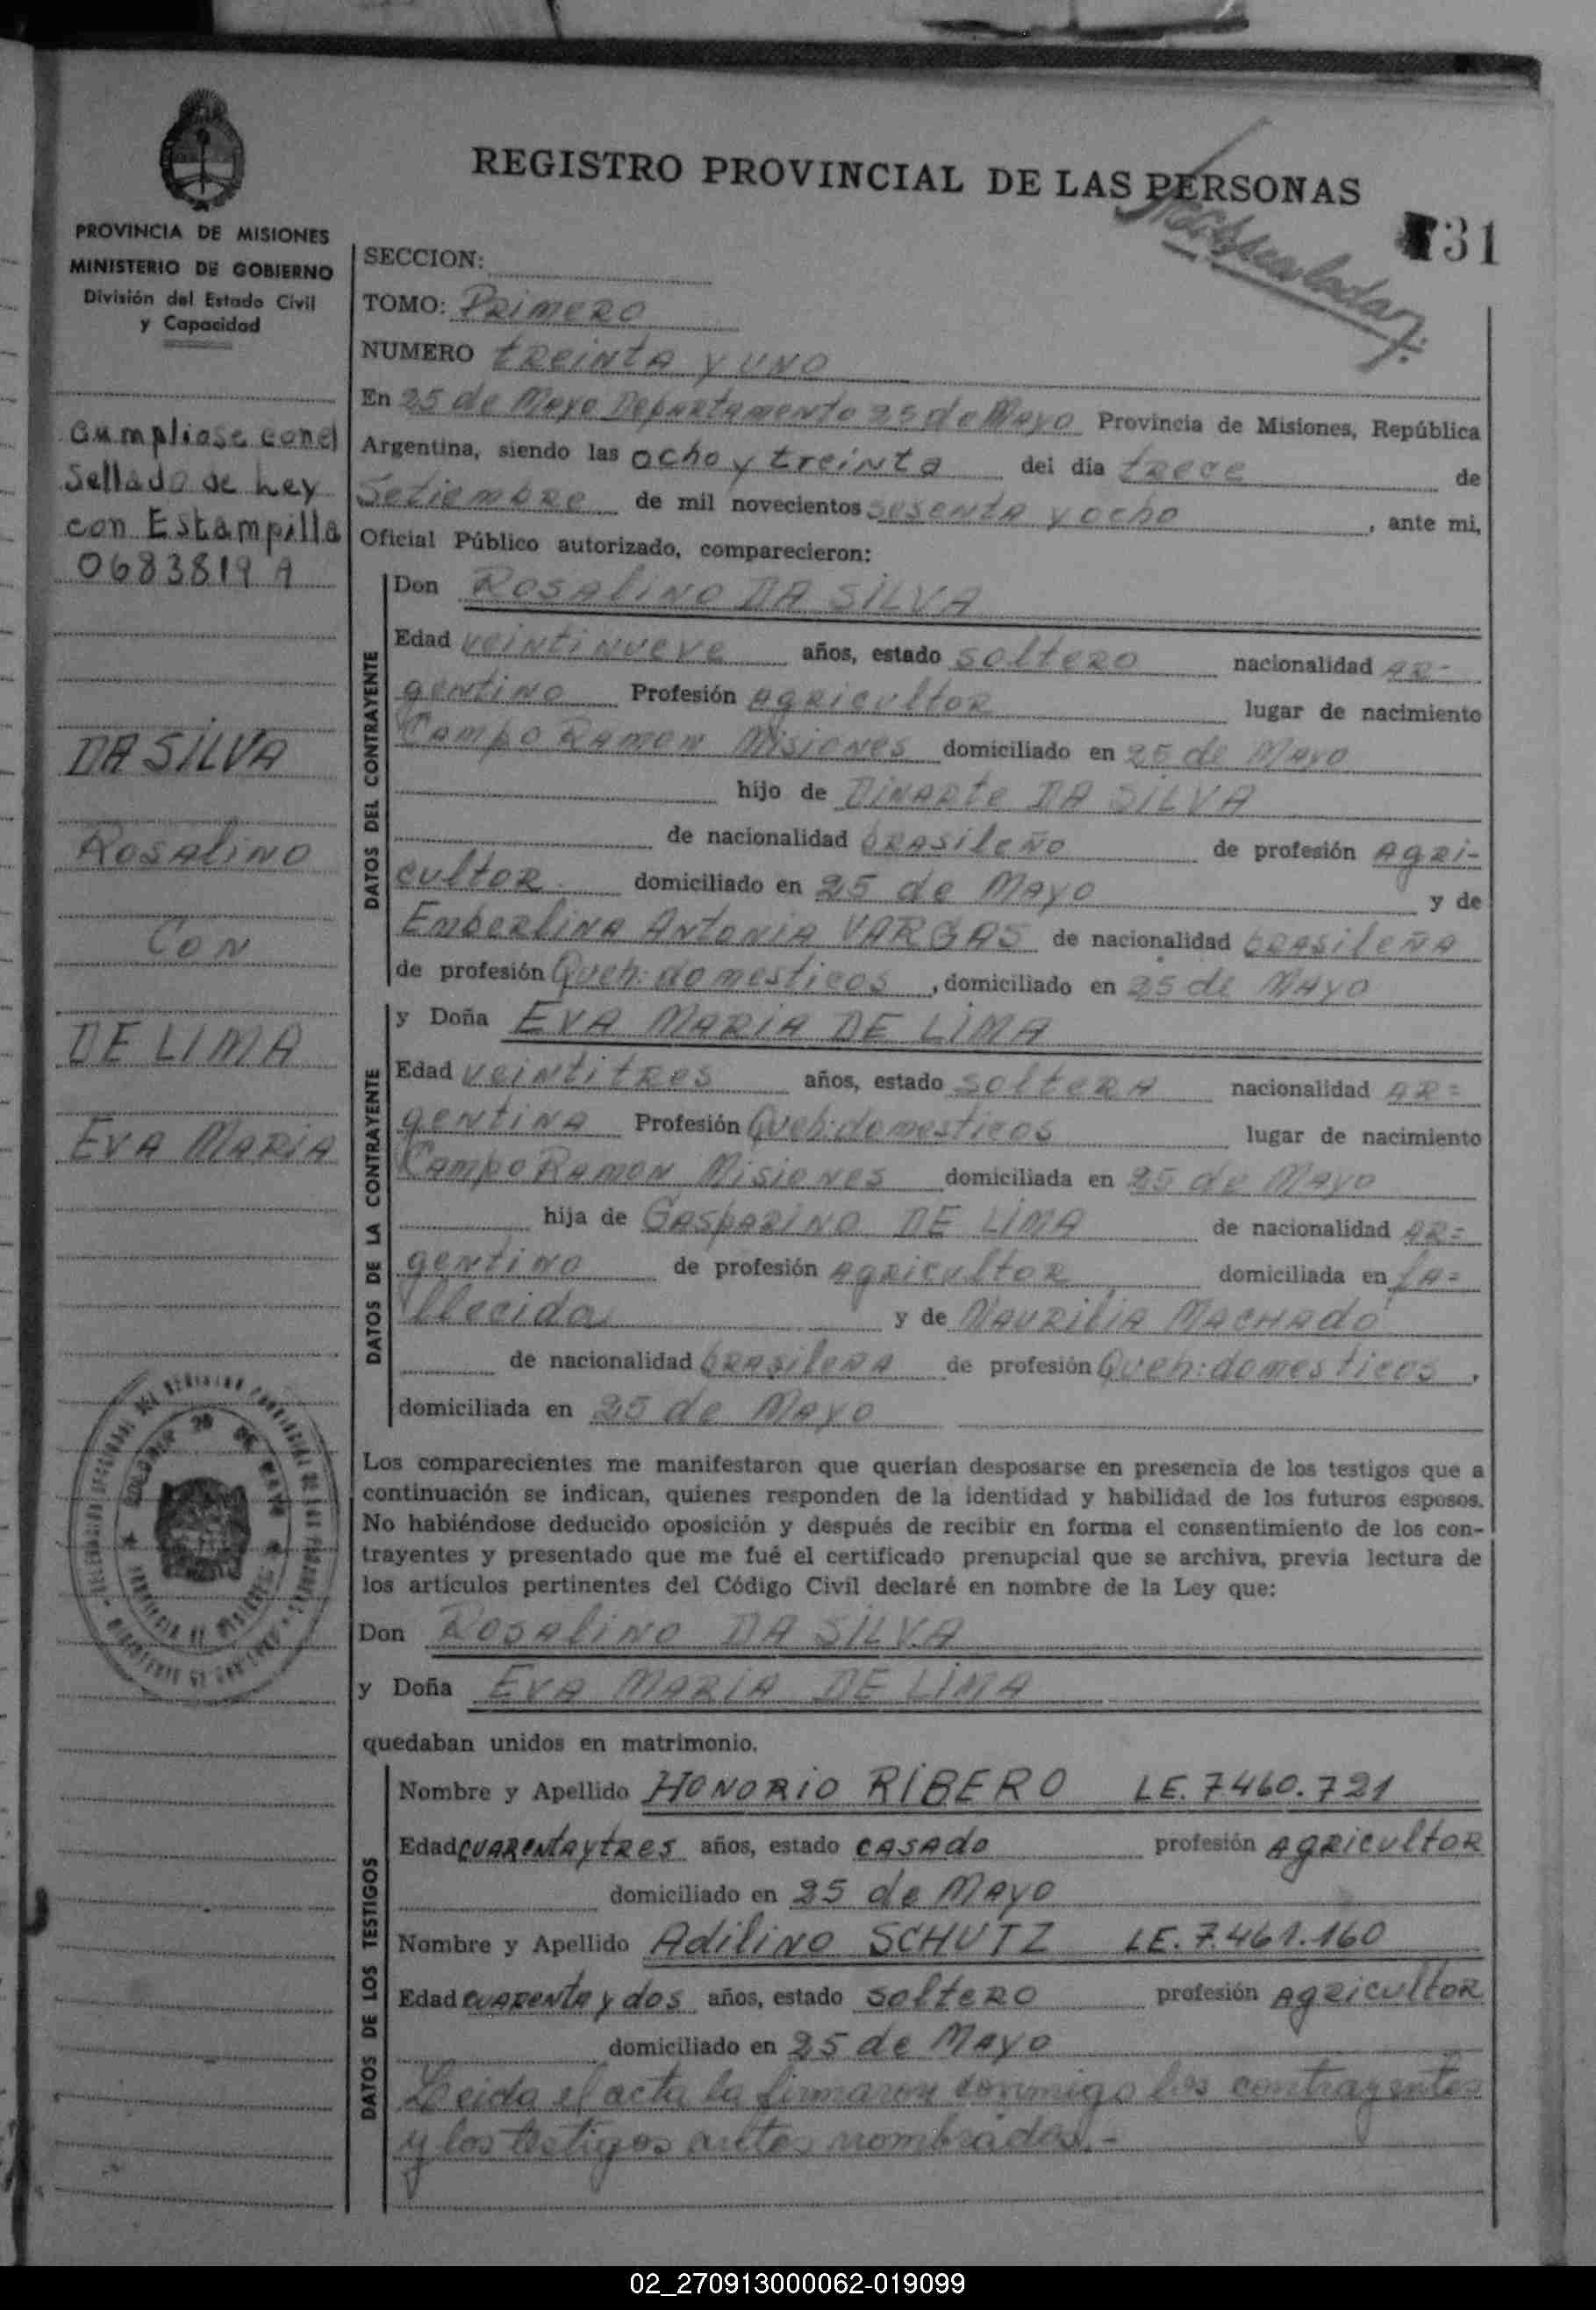 REGISTRO PROVINCIAL DE LAS PERSONAS
31
PROVINCIA DE MISIONES
MINISTERIO DE GOBIERNO
División del Estado Civil
y Capacidad
Cumpliose con el
Sellado de Ley
con Estampilla
0683819 A
DA SILVA
Rosalino
Con
DE LIMA
EVA MARIA
SECCION:
TOMO: Primero
NUMERO treinta y uno
En 25 de Mayo Departamento 25 de Mayo Provincia de Misiones, República
Argentina, siendo las ocho y treinta del día trece de
Setiembre de mil novecientos sesenta y ocho, ante mi,
Oficial Público autorizado, comparecieron:
DATOS DEL CONTRAYENTE
Don Rosalino DA SILVA
Edad veintinueve años, estado soltero nacionalidad Ar-
gentino Profesión Agricultor lugar de nacimiento
Campo Ramon Misiones domiciliado en 25 de Mayo
hijo de Dinarte DA SILVA
de nacionalidad brasileño de profesión Agri-
cultor domiciliado en 25 de Mayo y de
Emberlina Antonia VARGAS de nacionalidad brasileña
de profesión Queh: domesticos, domiciliado en 25 de Mayo
DATOS DE LA CONTRAYENTE
y Doña EVA MARIA DE LIMA
Edad veintitres años, estado soltera nacionalidad Ar=
gentina Profesión Queh: domesticos lugar de nacimiento
Campo Ramon Misiones domiciliada en 25 de Mayo
hija de Gasparino DE LIMA de nacionalidad Ar=
gentino de profesión Agricultor domiciliada en fa=
llecido y de Maurilia Machado
de nacionalidad brasilera de profesión Queh: domesticos,
domiciliada en 25 de Mayo
Los comparecientes me manifestaron que querían desposarse en presencia de los testigos que a
continuación se indican, quienes responden de la identidad y habilidad de los futuros esposos.
No habiéndose deducido oposición y después de recibir en forma el consentimiento de los con-
trayentes y presentado que me fué el certificado prenupcial que se archiva, previa lectura de
los artículos pertinentes del Código Civil declaré en nombre de la Ley que:
Don Rosalino DA SILVA
y Doña EVA MARIA DE LIMA
quedaban unidos en matrimonio.
DATOS DE LOS TESTIGOS
Nombre y Apellido HONORIO RIBERO LE. 7.460.721
Edad cuarenta y tres años, estado casado profesión Agricultor
domiciliado en 25 de Mayo
Nombre y Apellido Adilino SCHUTZ LE. 7.461.160
Edad cuarenta y dos años, estado soltero profesión Agricultor
domiciliado en 25 de Mayo
Leida el acta la firmaron conmigo los contrayentes
y los testigos antes nombrados.-
02_270913000062-019099